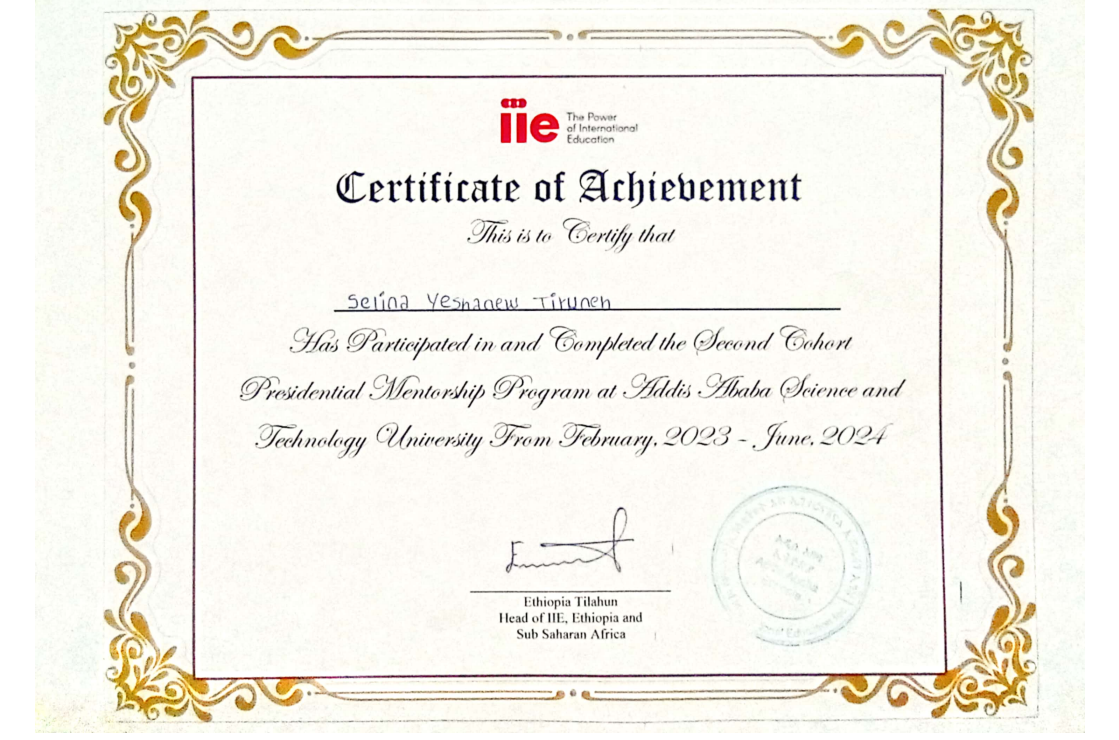 iie
The Power
of International
Education
Certificate of Achievement
This is to Certify that
Selina Yeshanew Tiruneh
Has Participated in and Completed the Second Cohort
Presidential Mentorship Program at Addis Ababa Science and
Technology University From February, 2023 - June, 2024
Ethiopia Tilahun
Head of IIE, Ethiopia and
Sub Saharan Africa